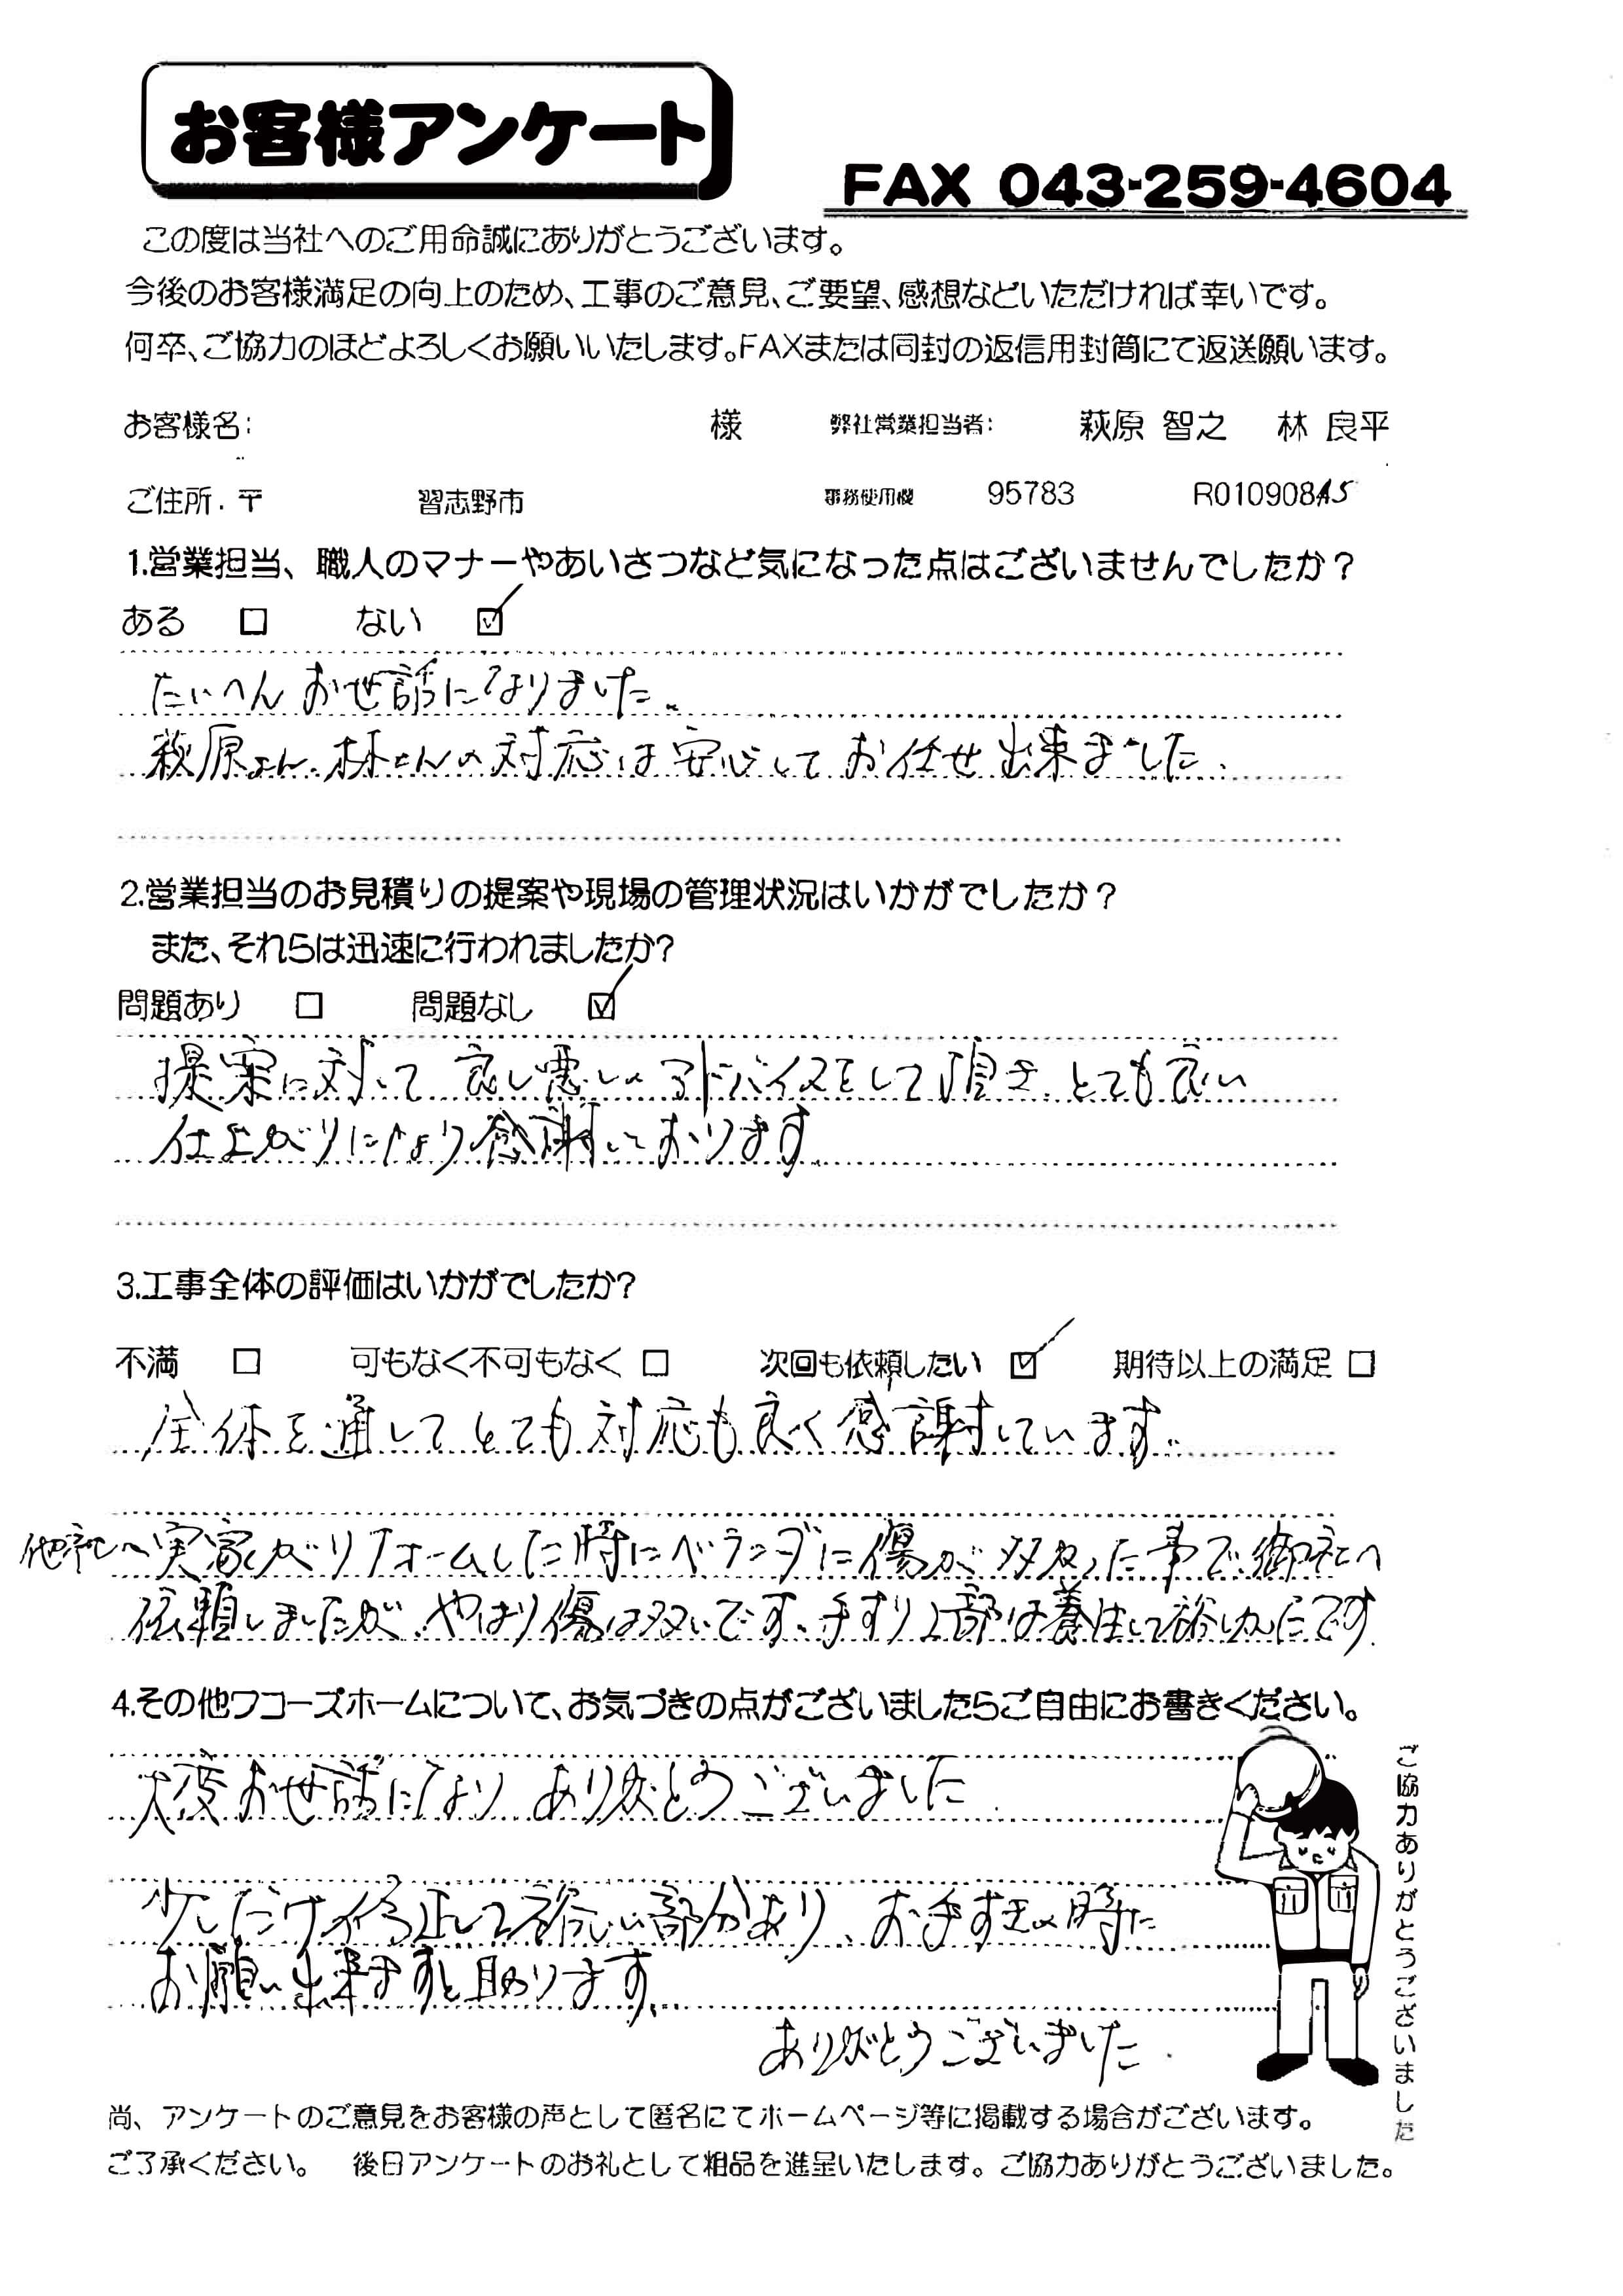 お客様アンケート
FAX 043-259-4604
この度は当社へのご用命誠にありがとうございます。
今後のお客様満足の向上のため、工事のご意見、ご要望、感想などいただければ幸いです。
何卒、ご協力のほどよろしくお願いいたします。FAXまたは同封の返信用封筒にて返送願います。
お客様名: 様 弊社営業担当者: 萩原 智之 林 良平
ご住所. 〒 習志野市 事務使用欄 95783 R010908AS
1.営業担当、職人のマナーやあいさつなど気になった点はございませんでしたか？
ある □ ない ☑
たいへんお世話になりました。
萩原さん、林さんの対応は安心してお任せ出来ました。
2.営業担当のお見積りの提案や現場の管理状況はいかがでしたか？
また、それらは迅速に行われましたか？
問題あり □ 問題なし ☑
提案に対して良し悪しのアドバイスをして頂き、とても良い
仕上がりになり感謝しております
3.工事全体の評価はいかがでしたか？
不満 □ 可もなく不可もなく □ 次回も依頼したい ☑ 期待以上の満足 □
全体を通してとても対応も良く感謝しています。
他社へ実家がリフォームした時にベランダに傷が多かった事で、御社へ
依頼しましたが、やはり傷は多いです、手すり上部は養生して欲しかったです
4.その他ワコーズホームについて、お気づきの点がございましたらご自由にお書きください。
大変お世話になりありがとうございました
少しだけ修正して欲しい部分あり、お手すきの時に
お願い出来ますと助かります。
ありがとうございました.
ご協力ありがとうございました
尚、アンケートのご意見をお客様の声として匿名にてホームページ等に掲載する場合がございます。
ご了承ください。 後日アンケートのお礼として粗品を進呈いたします。ご協力ありがとうございました。